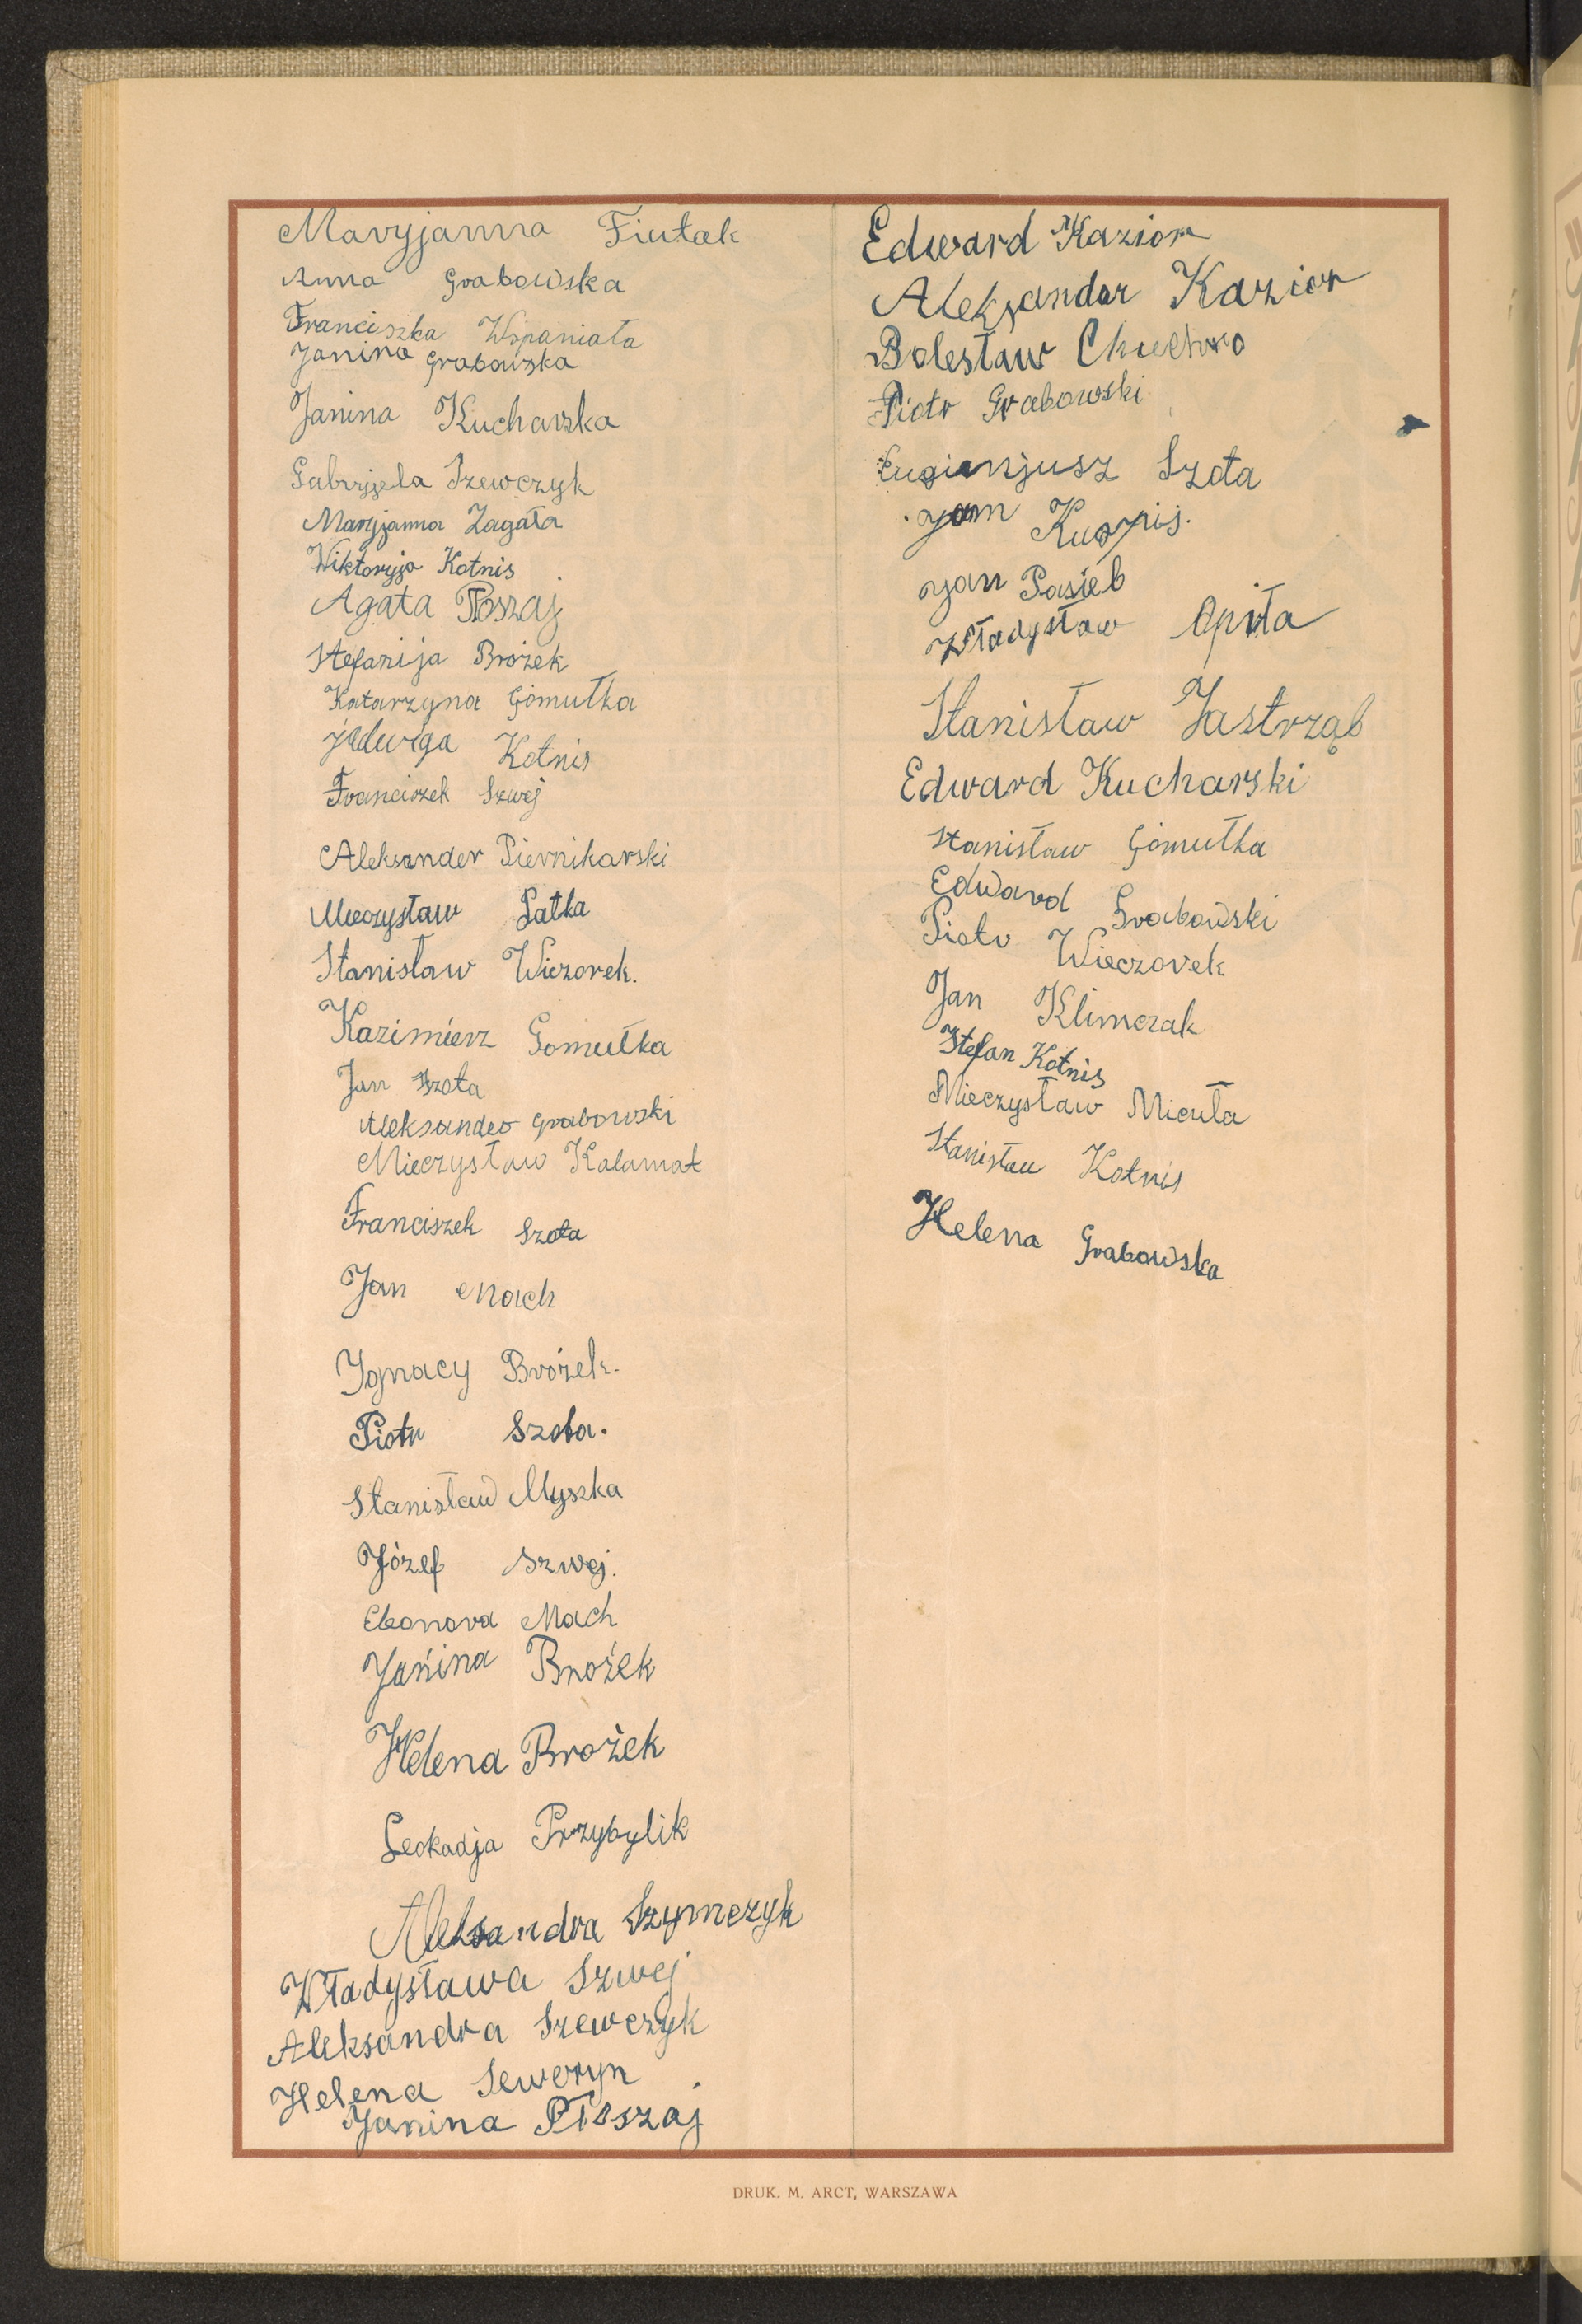 Maryjanna Fiutak
Anna Grabowska
Franciszka Wspaniała
Janina Grabowska
Janina Kucharska
Gabryjela Szewczyk
Maryjanna Zagała
Wiktoryja Kotnis
Agata Płoszaj
Stefanija Brożek
Katarzyna Gomułka
Jadwiga Kotnis
Franciszek Szwej
Aleksander Piernikarski
Mieczysław Łatka
Stanisław Wiczorek.
Kazimierz Gomułka
Jan Szota
Aleksander Grabowski
Mieczysław Kalamat
Franciszek Szota
Jan Mach
Ignacy Brożek.
Piotr Szota.
Stanisław Myszka
Józef Szwej.
Eleonora Mach
Janina Brożek
Helena Brożek
Leokadja Przybylik
Aleksandra Szymczyk
Władysława Szwej
Aleksandra Szewczyk
Helena Seweryn
Janina Płoszaj
Edward Kazior
Aleksander Kazior
Bolesław Chuchro
Piotr Grabowski
Eugienjusz Szota
Jan
Jan Pasieb
Władysław Opiła
Stanisław Jastrząb
Edward Kucharski
Stanisław Gomułka
Edward Grabowski
Piotr Wieczorek
Jan Klimczak
Stefan Kotnis
Mieczysław Micuła
Stanisław Kotnis
Helena Grabowska
DRUK. M. ARCT, WARSZAWA